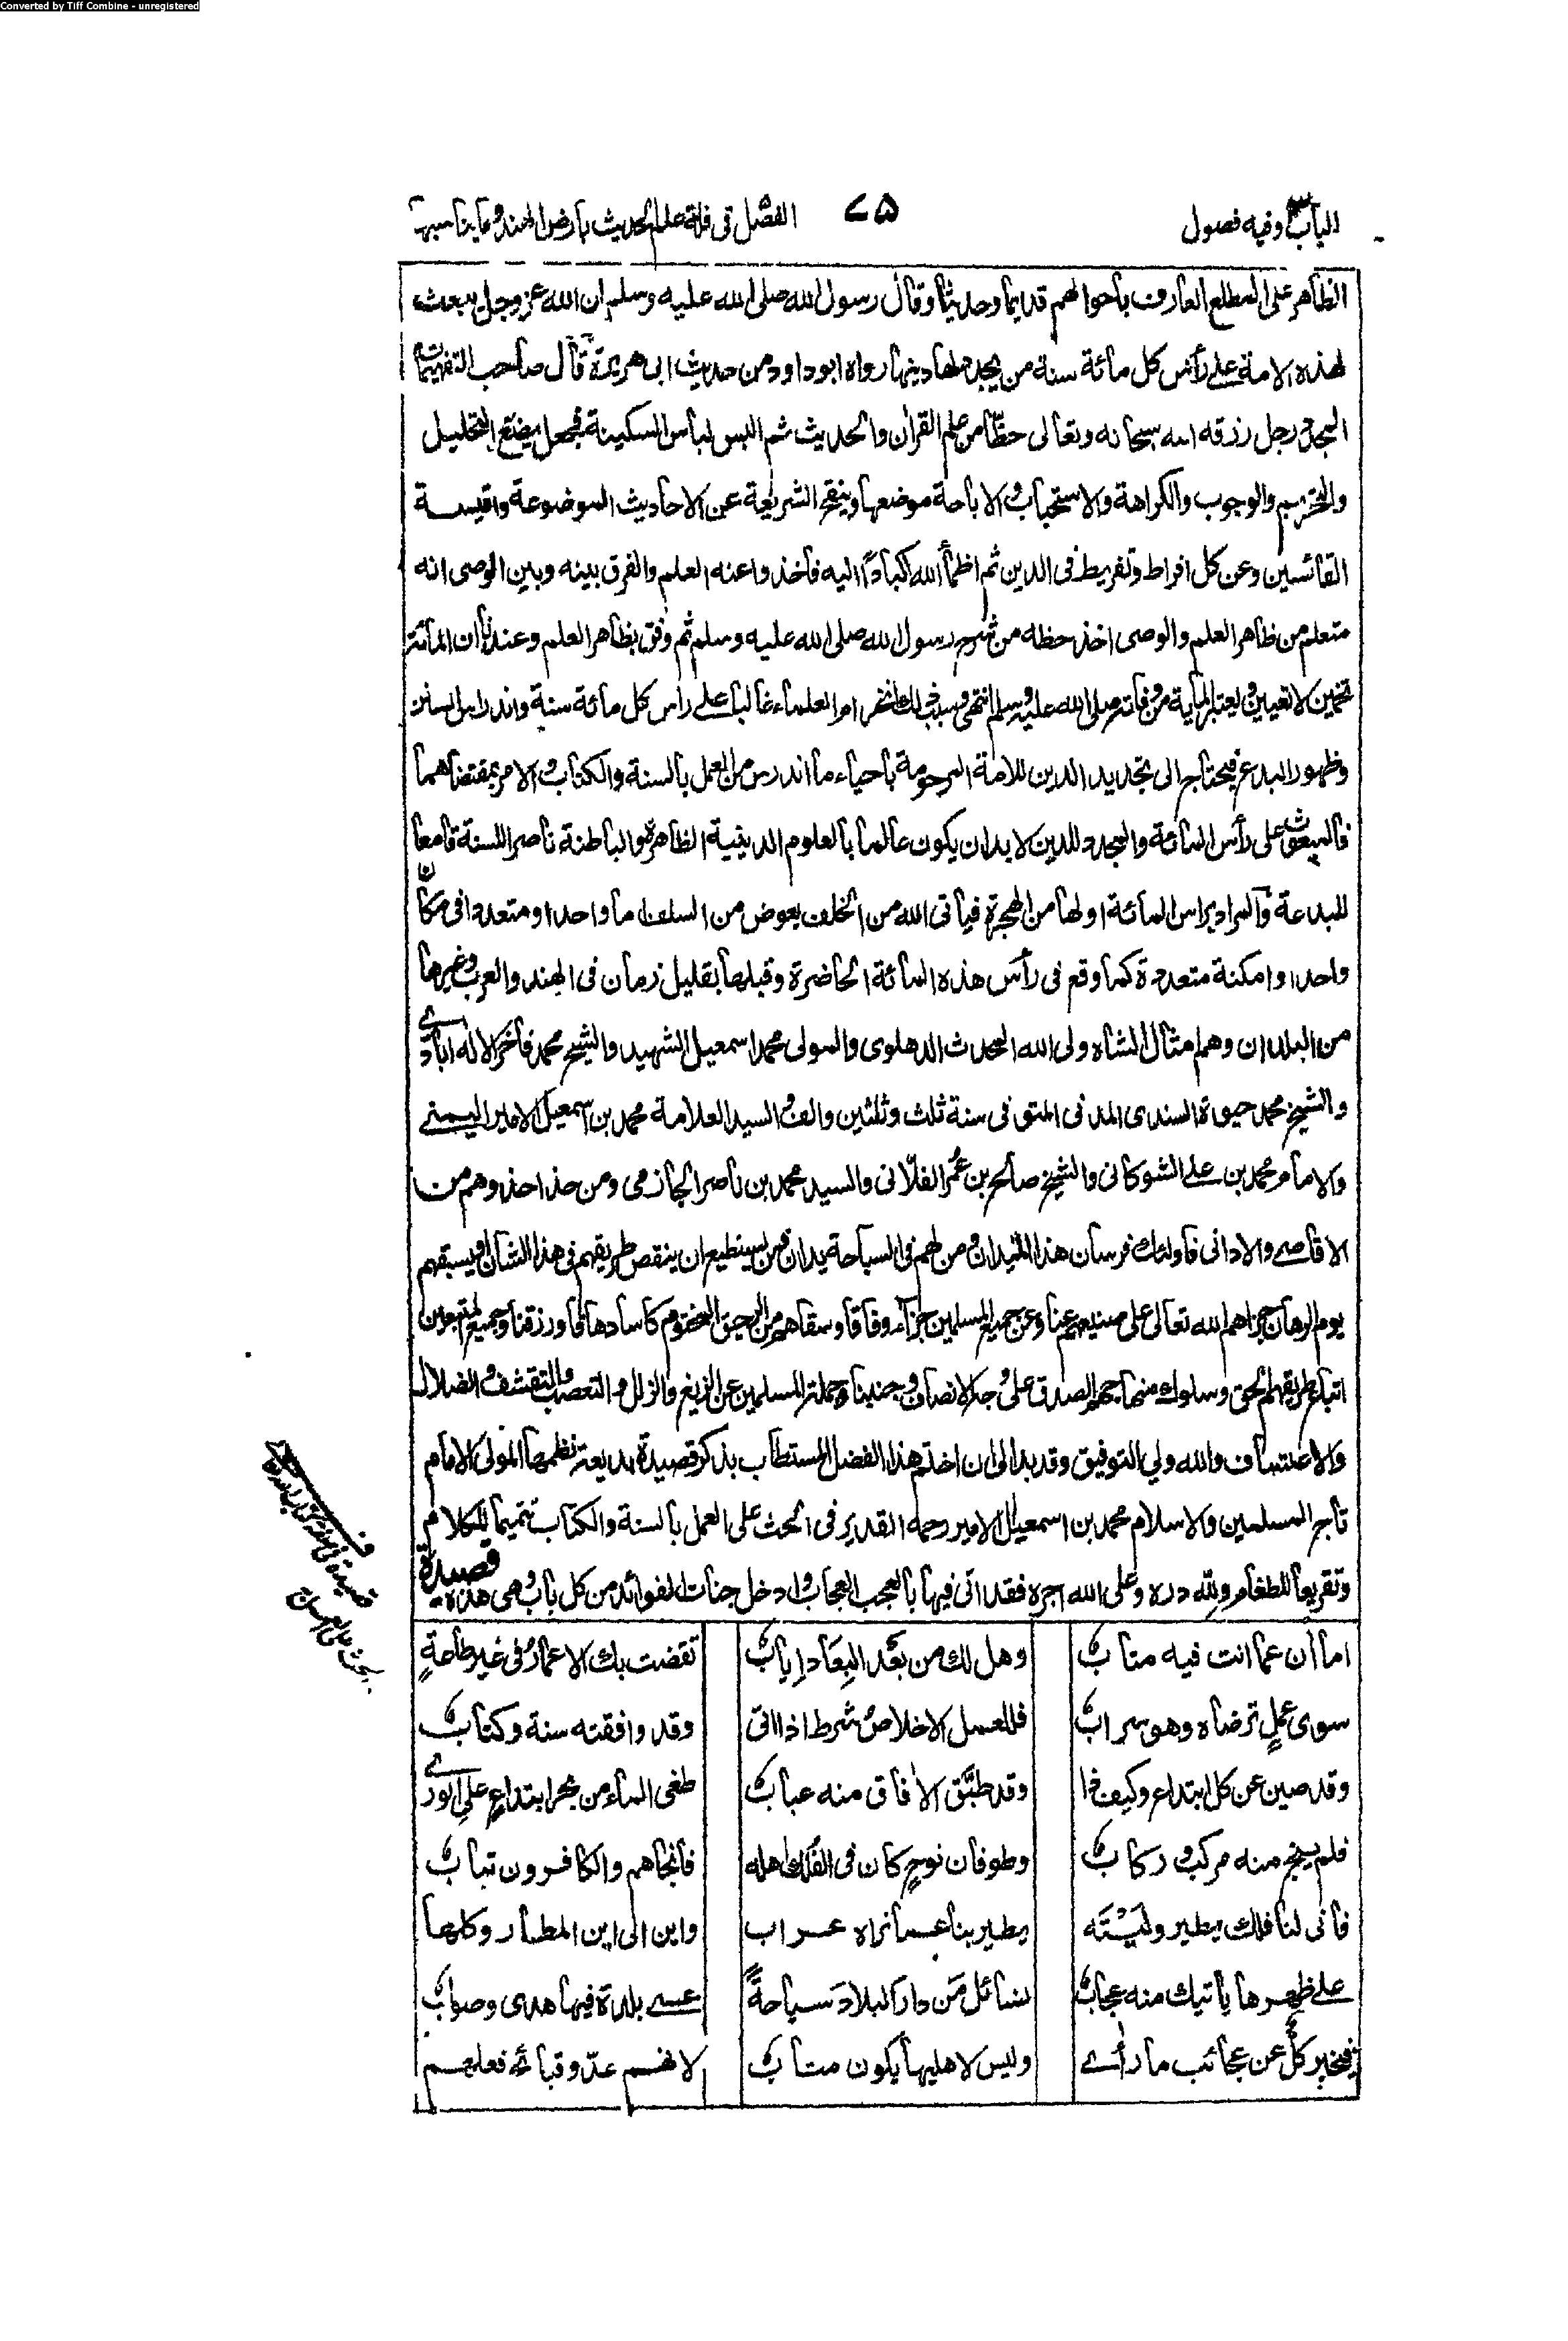 Converted by Tiff Combine - unregistered
الباب وفيه فصول
٧٥
الفصل في قلة علم الحديث بارض الهند وما يناسبها
الظاهر على المطلع العارف باحوالهم قديما وحديثا وقال رسول الله صلى الله عليه وسلم ان الله عز وجل يبعث
لهذه الامة على رأس كل مائة سنة من يجدد لها دينها رواه ابو داود من حديث ابى هريرة قال صاحب التفهيمات
المجدد رجل رزقه الله سبحانه وتعالى حظا من علم القرآن والحديث ثم البس لباس السكينة فجعل يضع التحليل
والتحريم والوجوب والكراهة والاستحباب والاباحة موضعها وينقح الشريعة عن الاحاديث الموضوعة واقيسة
القائسين وعن كل افراط وتفريط فى الدين ثم اظمأ الله اكبادا اليه فاخذوا عنه العلم والفرق بينه وبين الوصى انه
متعلم من ظاهر العلم والوصى اخذ حظه من شرح رسول الله صلى الله عليه وسلم ثم وفق بظاهر العلم وعندنا ان المائة
تخمين لا تعيين ويعتبر المأية من وفاته صلى الله عليه وسلم انتهى وسبب ذلك انخرام العلماء غالبا على رأس كل مائة سنة واندراس السنن
وظهور البدع فيحتاج الى تجديد الدين للامة المرحومة باحياء ما اندرس من العمل بالسنة والكتاب والامر بمقتضاهما
فالمبعوث على رأس المائة والمجدد للدين لابد ان يكون عالما بالعلوم الدينية الظاهرة والباطنة ناصرا للسنة قامعا
للبدعة والمراد براس المائة اولها من الهجرة فياتى الله من الخلف بعوض من السلف اما واحدا او متعددا فى مكان
واحد او امكنة متعددة كما وقع فى رأس هذه المائة الحاضرة وقبلها بقليل زمان فى الهند والعرب وغيرها
من البلدان وهم امثال الشاه ولى الله المحدث الدهلوى والمولى محمد اسمعيل الشهيد والشيخ محمد فاخر الاله ابادى
والشيخ محمد حيوة السندى المدنى المتوفى سنة ثلث وثلثين والف والسيد العلامة محمد بن اسمعيل الامير اليمنى
والامام محمد بن على الشوكانى والشيخ صالح بن عمر الفلانى والسيد محمد بن ناصر الحازمى ومن حذا حذوهم من
الاقاصى والادانى فاولئك فرسان هذا الميدان ومن لهم فى السباحة يدان فمن يستطيع ان ينقص طريقهم فى هذا الشان او يسبقهم
يوم الرهان جزاهم الله تعالى على صنيعهم عنا وعن جميع المسلمين جزاء وفاقا وسقاهم من الرحيق المختوم كاسا دهاقا ورزقنا وجميع المتبعين
اتباع طريقهم الحق وسلوك منهاجهم الصدق على وجه الانصاف وجنبنا وجملة المسلمين عن الزيغ والزلل والتعصب والتقشف والضلال
والاعتساف والله ولي التوفيق وقد بدا لى ان اختم هذا الفصل المستطاب بذكر قصيدة بديعة نظمها المولى الامام
تاج المسلمين والاسلام محمد بن اسمعيل الامير رحمه القدير فى الحث على العمل بالسنة والكتاب تتميما للكلام
وتقريعا للطغام ولله دره وعلى الله اجره فقد اتى فيها بالعجب العجاب وادخل جنات الفوائد من كل باب وهى هذه
قصيدة
اما آن عما انت فيه متاب وهل لك من بعد البعاد اياب تقضت بك الاعمار فى غير طاعة
سوى عمل ترضاه وهو سراب فللعمل الاخلاص شرط اذا اتى وقد وافقته سنة وكتاب
وقد صين عن كل ابتداع وكيف ذا وقد طبق الآفاق منه عباب طغى الماء من بحر ابتداع على الورى
فلم ينج منه مركب وركاب وطوفان نوح كان فى الفلك اهله فانجاهم والكافرون تباب
فانى لنا فلك يطير وليته يطير بنا عما نراه غراب واين الى اين المطار وكلها
على ظهرها ياتيك منه عجاب نسائل من دار البلاد سياحة عسى بلدة فيها هدى وصواب
فيخبر كل عن عجائب ما رأى وليس لاهليها يكون متاب لانهم عدوا قبائح فعلهم